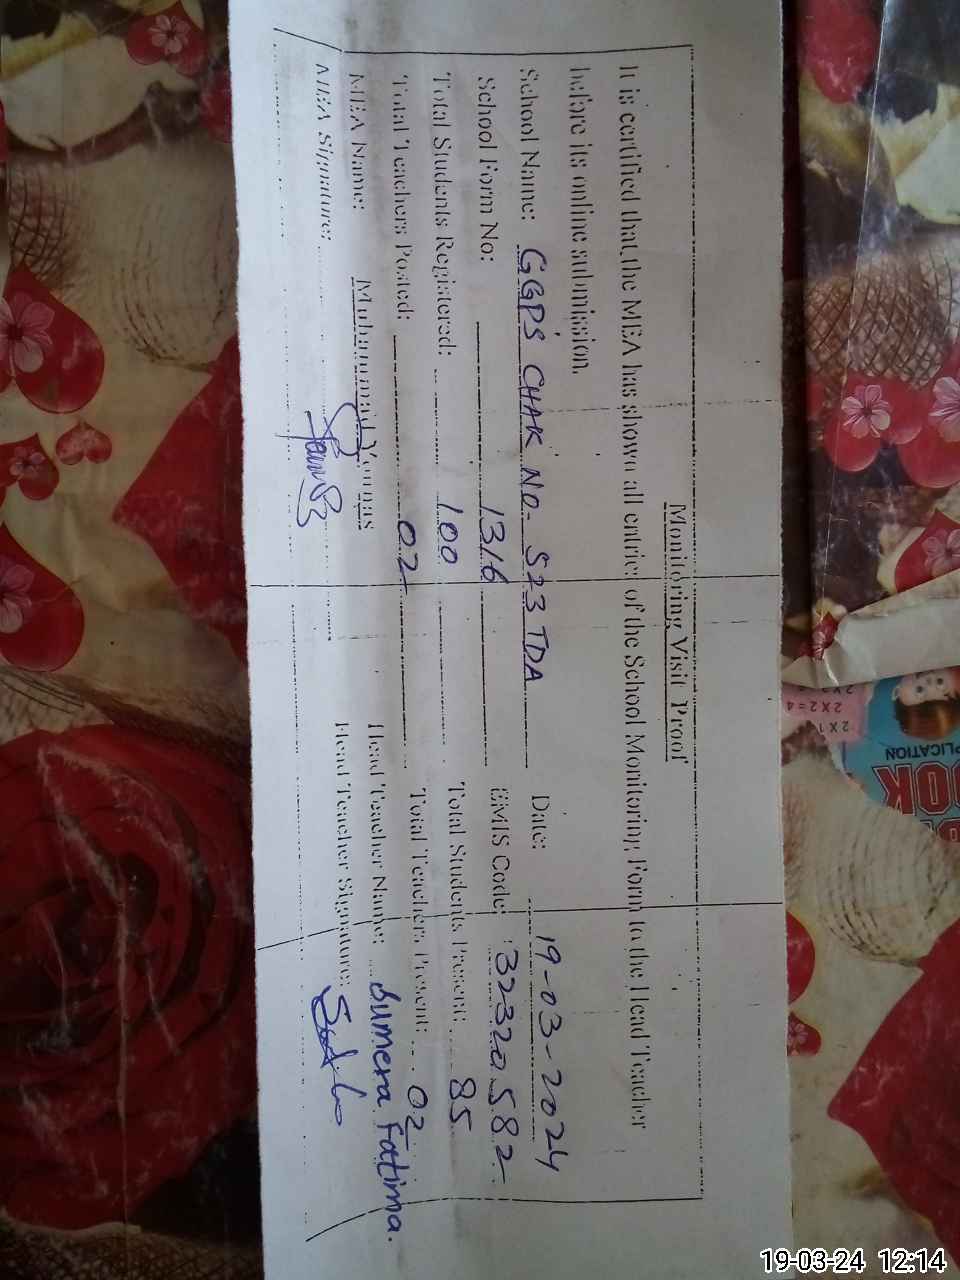 Monitoring Visit Proof
It is certified that the MEA has shown all entries of the School Monitoring Form to the Head Teacher
before its online submission.
School Name: GGPS CHAK NO. 523 TDA Date: 19-03-2024
School Form No: 1316 EMIS Code: 32320582
Total Students Registered: 100 Total Students Present: 85
Total Teachers Posted: 02 Total Teachers Present: 02
MEA Name: Muhammad Younas Head Teacher Name: Sumera Fatima.
MEA Signature: Head Teacher Signature:
2X1
2X2=4
PLICATION
OOK
19-03-24 12:14